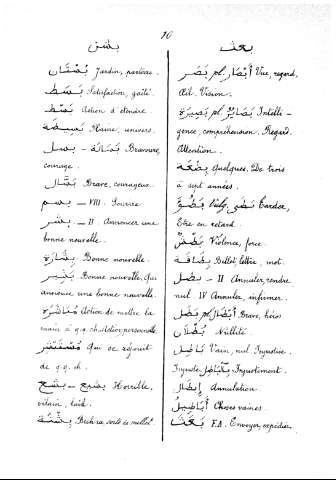 10
بشن
بستان Jardin, parterre.
بسط Satisfaction, gaîté.
بسط Action d'étendre.
بسيطة Plaine, univers.
بسل – بسالة Bravoure,
courage.
بسّال Brave, courageux.
بسم – VIII. Sourire
بشر – II. Annoncer une
bonne nouvelle.
بشارة Bonne nouvelle.
بشير Bonne nouvelle, Qui
annonce une bonne nouvelle.
مباشرة Action de mettre la
main à q.q. ch. d'elle personnelle.
مستبشر Qui se réjouit
de q.q. ch.
بشع – بشيع Horrible,
vilain, laid.
بشنة Bechna, sorte de millet.
بعث
بصر pl. أبصار Vue, regard,
Œil. Vision.
بصيرة pl. بصائر Intelli-
gence, compréhension. Regard.
Attention.
بضعة Quelques. De trois
à sept années.
Tarder,
Etre en retard.
Violence, force.
Billet, lettre, mot.
بطل – II Annuler, rendre
nul. IV Annuler, infirmer.
بطل pl. أبطال Brave, héros
بطلان Nullité.
باطل Vain, nul. Injustice.
Injuste. بالباطل Injustement.
إبطال Annulation.
أباطيل Choses vaines.
بعث F.A. Envoyer, expédier